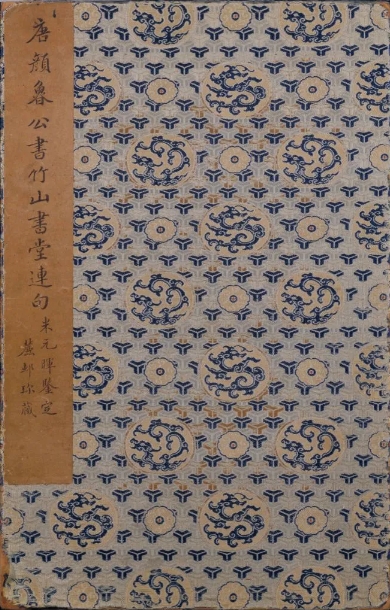 唐顏魯公書竹山書堂連句
米元暉鑒定
蕉邨珍藏